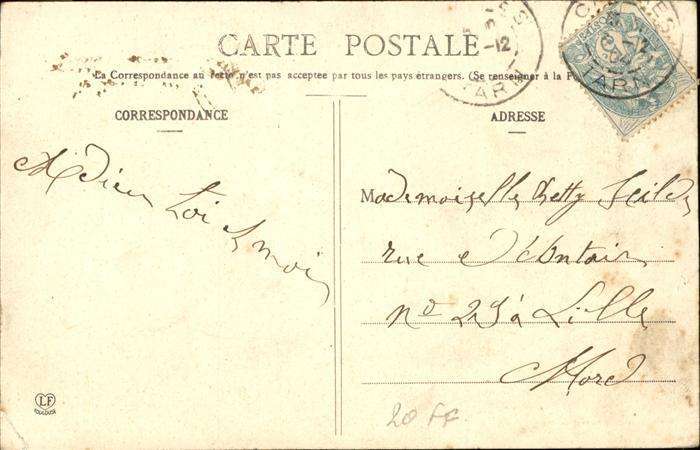 CARTE POSTALE
La Correspondance au recto n'est pas acceptée par tous les pays étrangers. (Se renseigner à la P
CORRESPONDANCE
ADRESSE
Dieu toi & moi
Mademoiselle Betty
rue d'Antain
no 29 à Lille
Nord
LF
TOULOUSE
20 FF
TARN
TARN
12